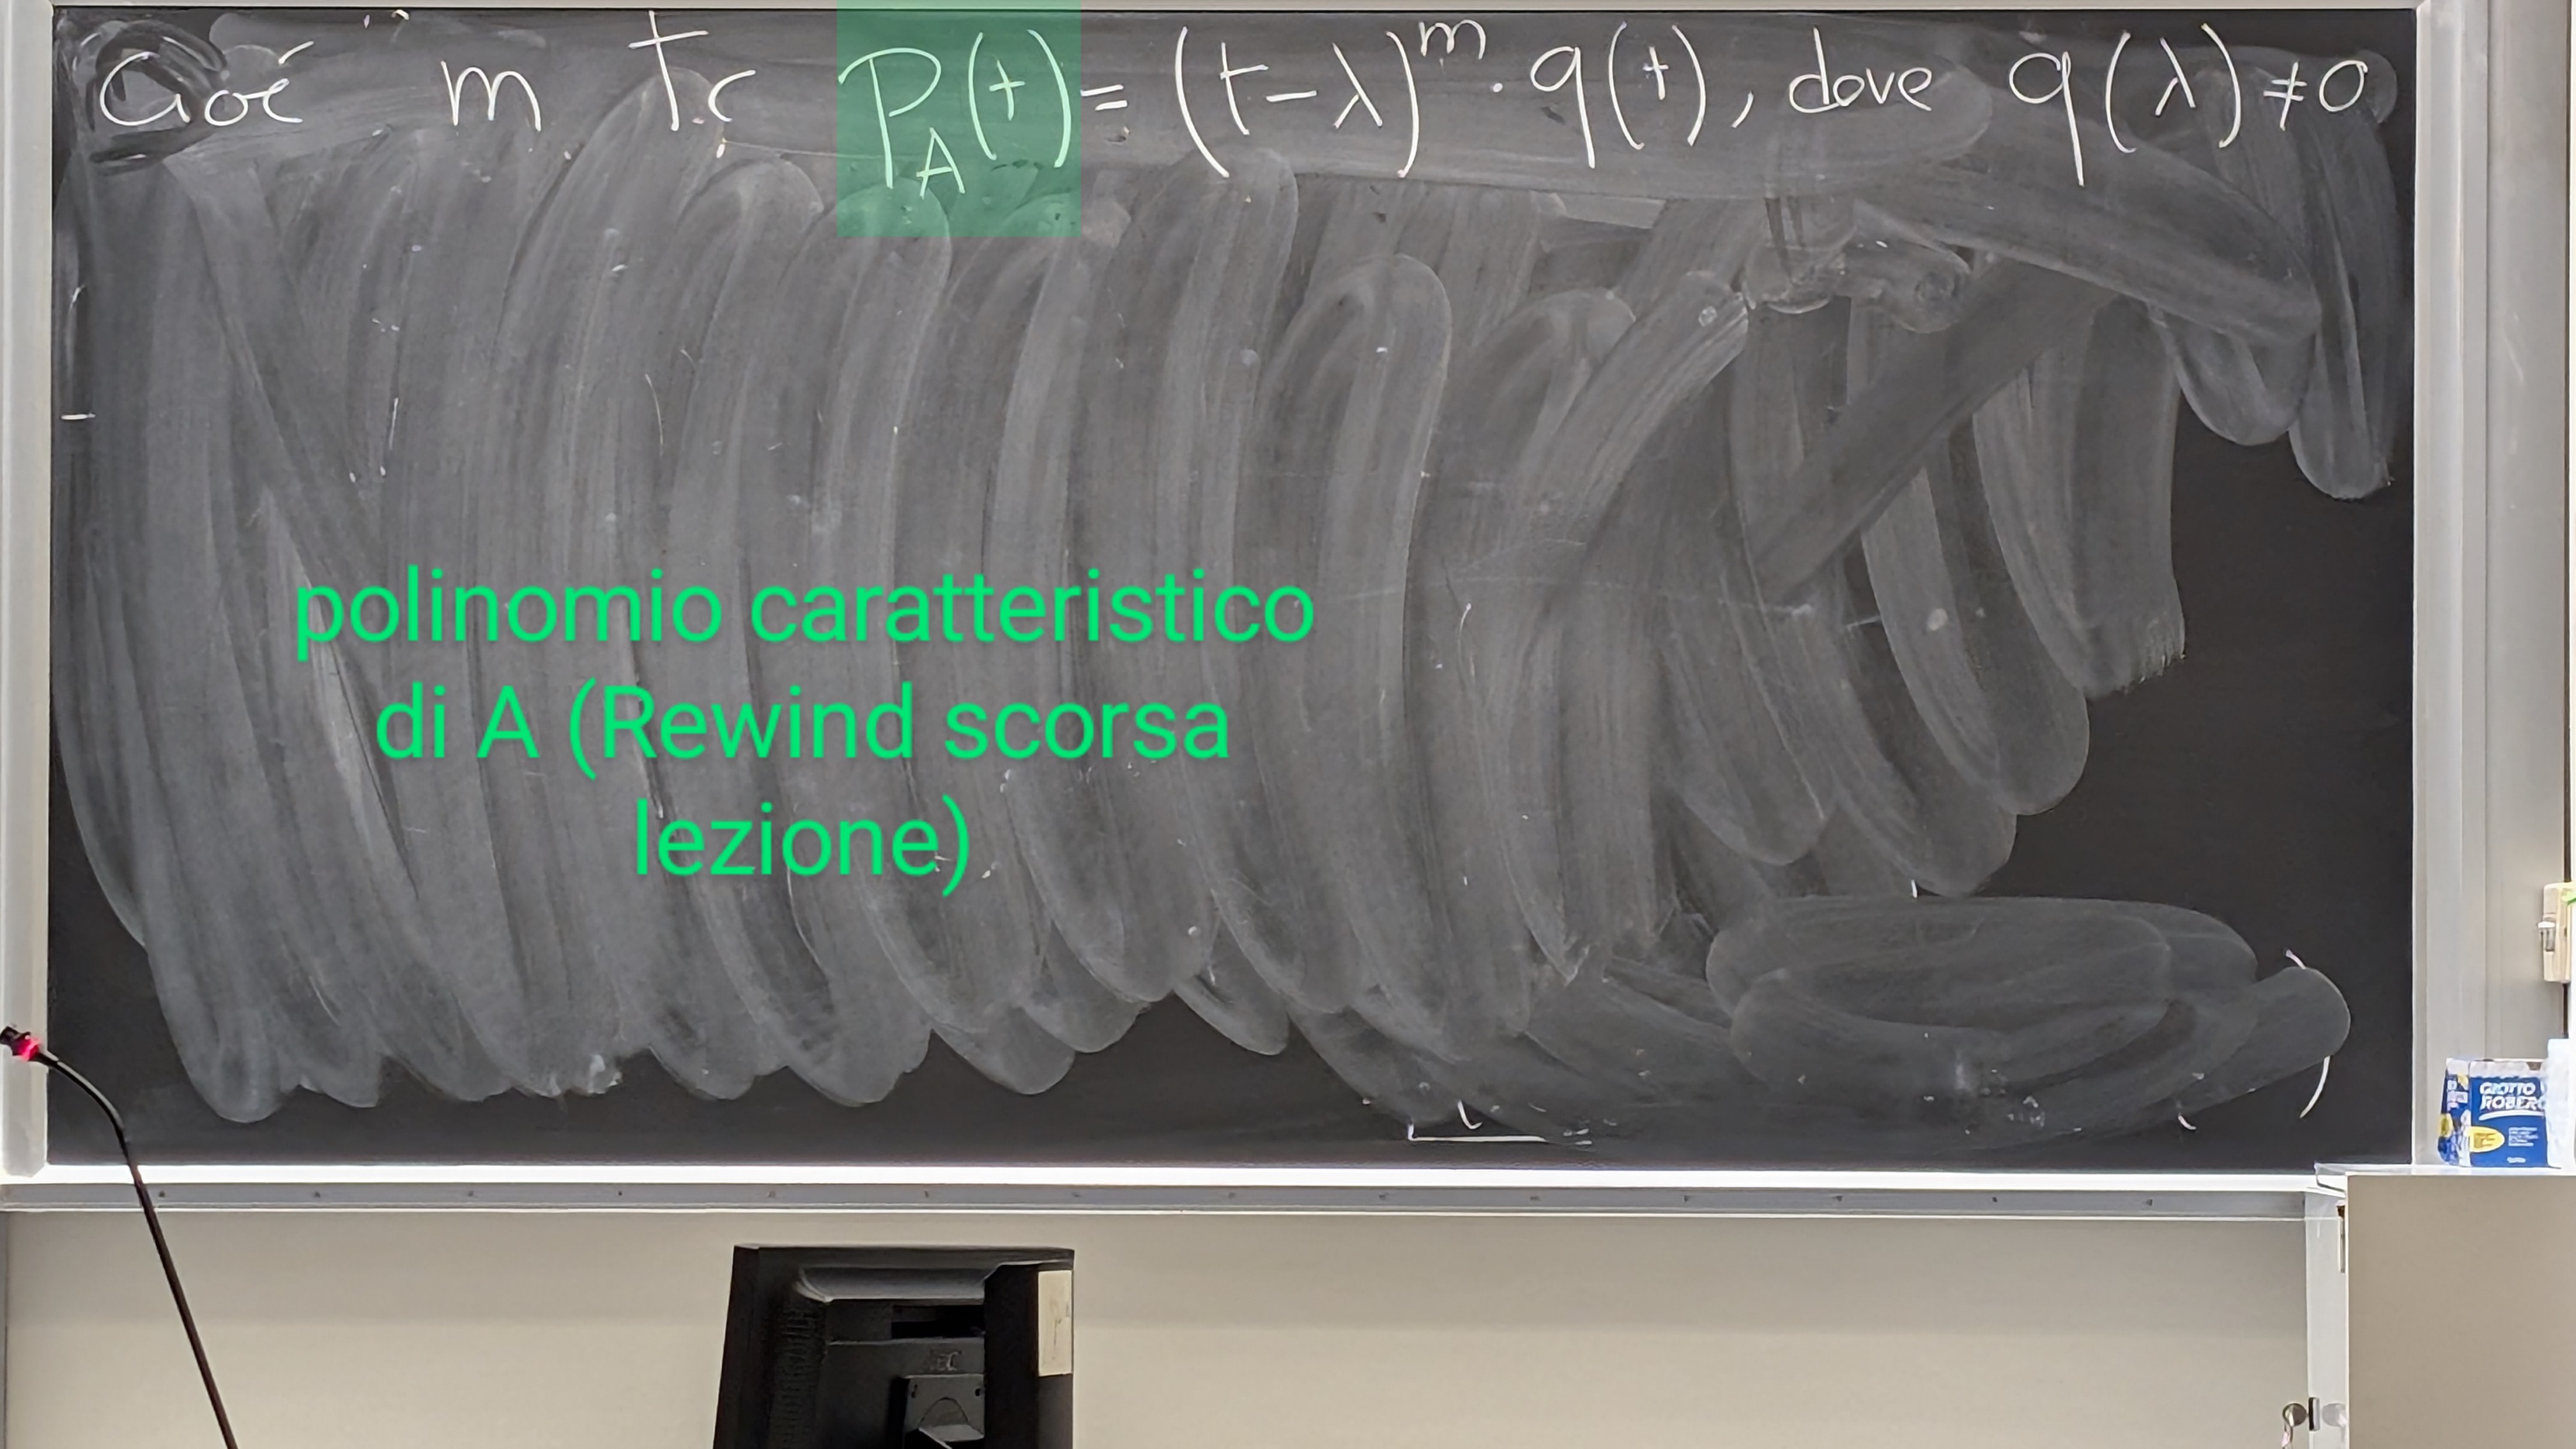 Cioè m tc P_A(t) = (t-λ)^m · q(t), dove q(λ) ≠ 0
polinomio caratteristico
di A (Rewind scorsa
lezione)
GIOTTO
ROBERC